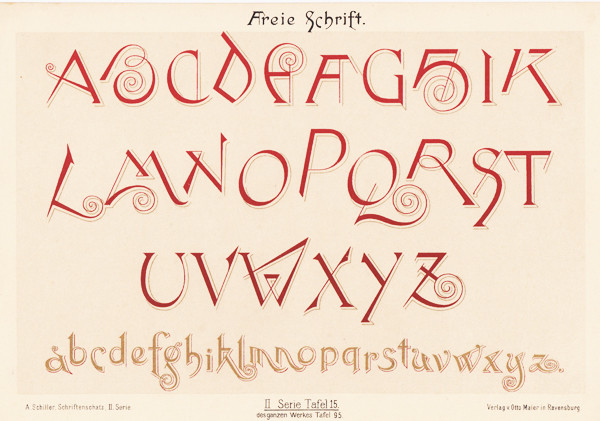 Freie Schrift.
ABCDEFGHIK
LMNOPQRST
UVWXYZ
abcdefghiklmnopqrstuvwxyz.
A. Schiller, Schriftenschatz, II. Serie
II Serie Tafel 15.
des ganzen Werkes Tafel 95.
Verlag v. Otto Maier in Ravensburg